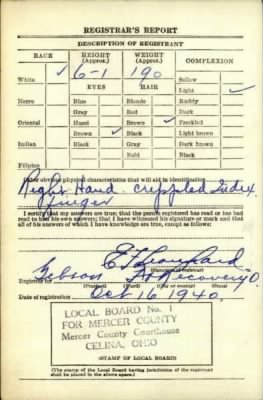 REGISTRAR'S REPORT
DESCRIPTION OF REGISTRANT
RACE HEIGHT (Approx.) WEIGHT (Approx.) COMPLEXION
White ✓ 6-1 190 Sallow
EYES HAIR Light ✓
Negro Blue Blonde Ruddy
Gray Red Dark
Oriental Hazel Brown ✓ Freckled
Brown ✓ Black Light brown
Indian Black Gray Dark brown
Bald Black
Filipino
Other obvious physical characteristics that will aid in identification
Right Hand. crippled Index
finger
I certify that my answers are true; that the person registered has read or has had
read to him his own answers; that I have witnessed his signature or mark and that
all of his answers of which I have knowledge are true, except as follows:
(Signature of registrar)
Registrar for Gibson Ft Recovery O.
(Precinct) (Ward) (City or county) (State)
Date of registration Oct 16 1940.
LOCAL BOARD No. 1
FOR MERCER COUNTY
Mercer County Courthouse
CELINA, OHIO
(STAMP OF LOCAL BOARD)
(The stamp of the Local Board having jurisdiction of the registrant
shall be placed in the above space.)